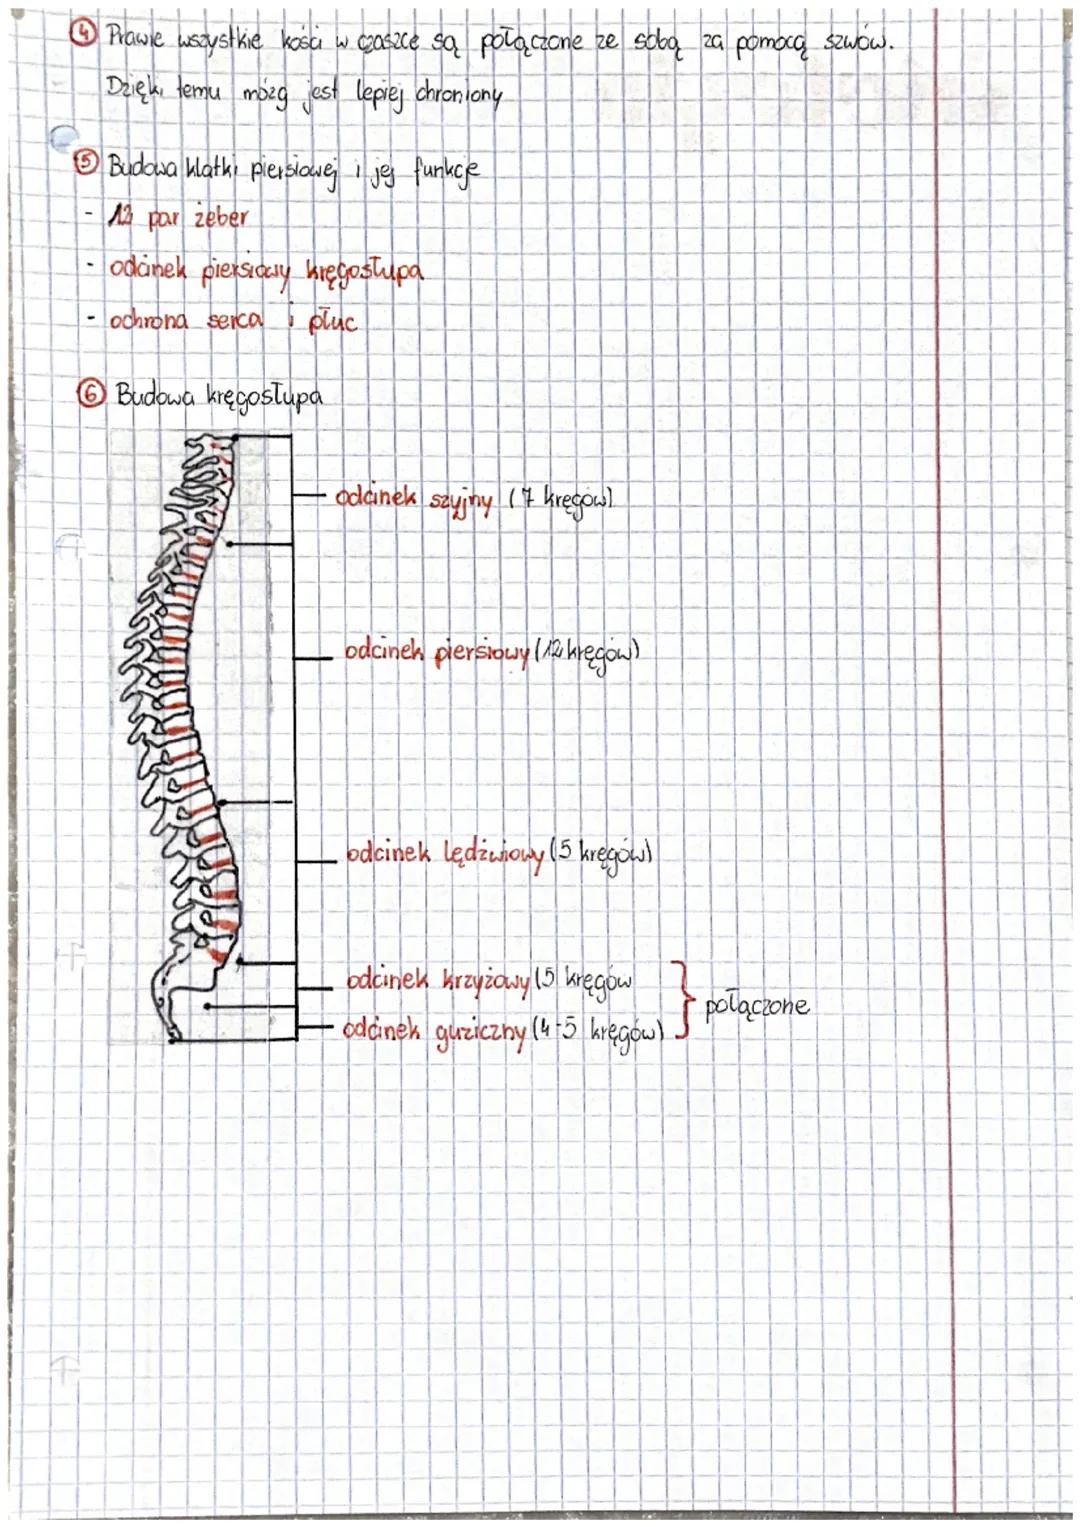 4 Prawie wszystkie kości w czaszce są połączone ze sobą za pomocą szwów.
Dzięki temu mózg jest lepiej chroniony
5 Budowa klatki piersiowej i jej funkcje
- 12 par żeber
- odcinek piersiowy kręgosłupa
- ochrona serca i płuc
6 Budowa kręgosłupa
odcinek szyjny (7 kręgów)
odcinek piersiowy (12 kręgów)
odcinek lędźwiowy (5 kręgów)
odcinek krzyżowy (5 kręgów
odcinek guziczny (4-5 kręgów)
połączone